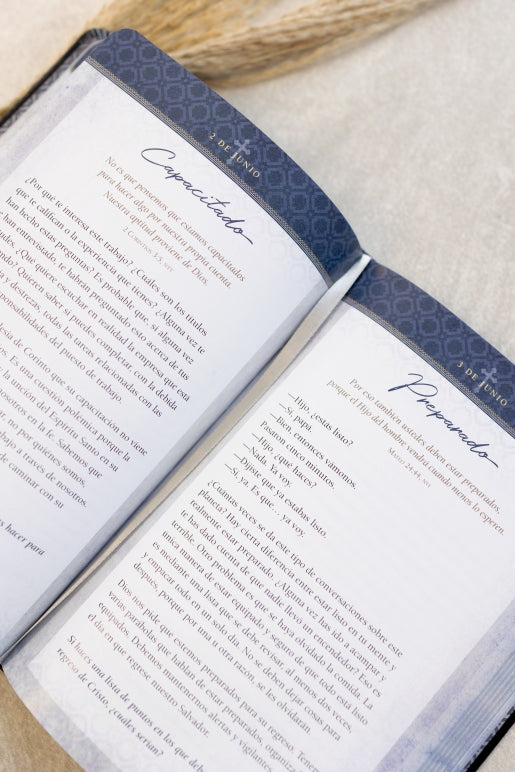 2 DE JUNIO
Capacitado
No es que pensemos que estamos capacitados
para hacer algo por nuestra propia cuenta.
Nuestra aptitud proviene de Dios.
2 Corintios 3.5, NTV
¿Por qué te interesa este trabajo? ¿Cuáles son los títulos
que te califican o la experiencia que tienes? ¿Alguna vez te
han hecho estas preguntas? Es probable que, si alguna vez
han entrevistado, te habrán preguntado esto acerca de tus
¿Qué quiere escuchar en realidad la empresa que está
Quieren saber si puedes completar, con la debida
y destrezas, todas las tareas relacionadas con las
responsabilidades del puesto de trabajo.
de Corinto que su capacitación no viene
Es una cuestión polémica porque la
la unción del Espíritu Santo en su
nosotros en la fe. Sabemos que
no por quiénes somos.
a través de nosotros.
de caminar con su
hacer para
3 DE JUNIO
Preparado
Por eso también ustedes deben estar preparados,
porque el Hijo del hombre vendrá cuando menos lo esperen.
Mateo 24.44, NVI
—Hijo, ¿estás listo?
—Sí, papá.
—Bien, entonces vámonos.
Pasaron cinco minutos.
—Hijo, ¿qué haces?
—Nada. Ya voy.
—Dijiste que ya estabas listo.
—Sí, ya. Es que... ya voy.
¿Cuántas veces se da este tipo de conversaciones sobre este
planeta? Hay cierta diferencia entre estar listo en tu mente y
realmente estar preparado. ¿Alguna vez has ido a acampar y
te has dado cuenta de que nadie llevó un encendedor? Eso es
terrible. Otro problema es que se haya olvidado la comida. La
única manera de estar equipado y seguro de que todo está listo
es mediante una lista que se debe revisar, al menos dos veces,
y empacar todo en un solo día. No se deben dejar cosas para
después, porque por una u otra razón, se les olvidarán.
Dios nos pide que estemos preparados para su regreso. Tenemos
varias parábolas que hablan de estar preparados, organizados
equipados. Debemos mantenernos alertas y vigilantes,
el día en que regrese nuestro Salvador.
Si haces una lista de puntos en los que debes
regreso de Cristo, ¿cuáles serían?